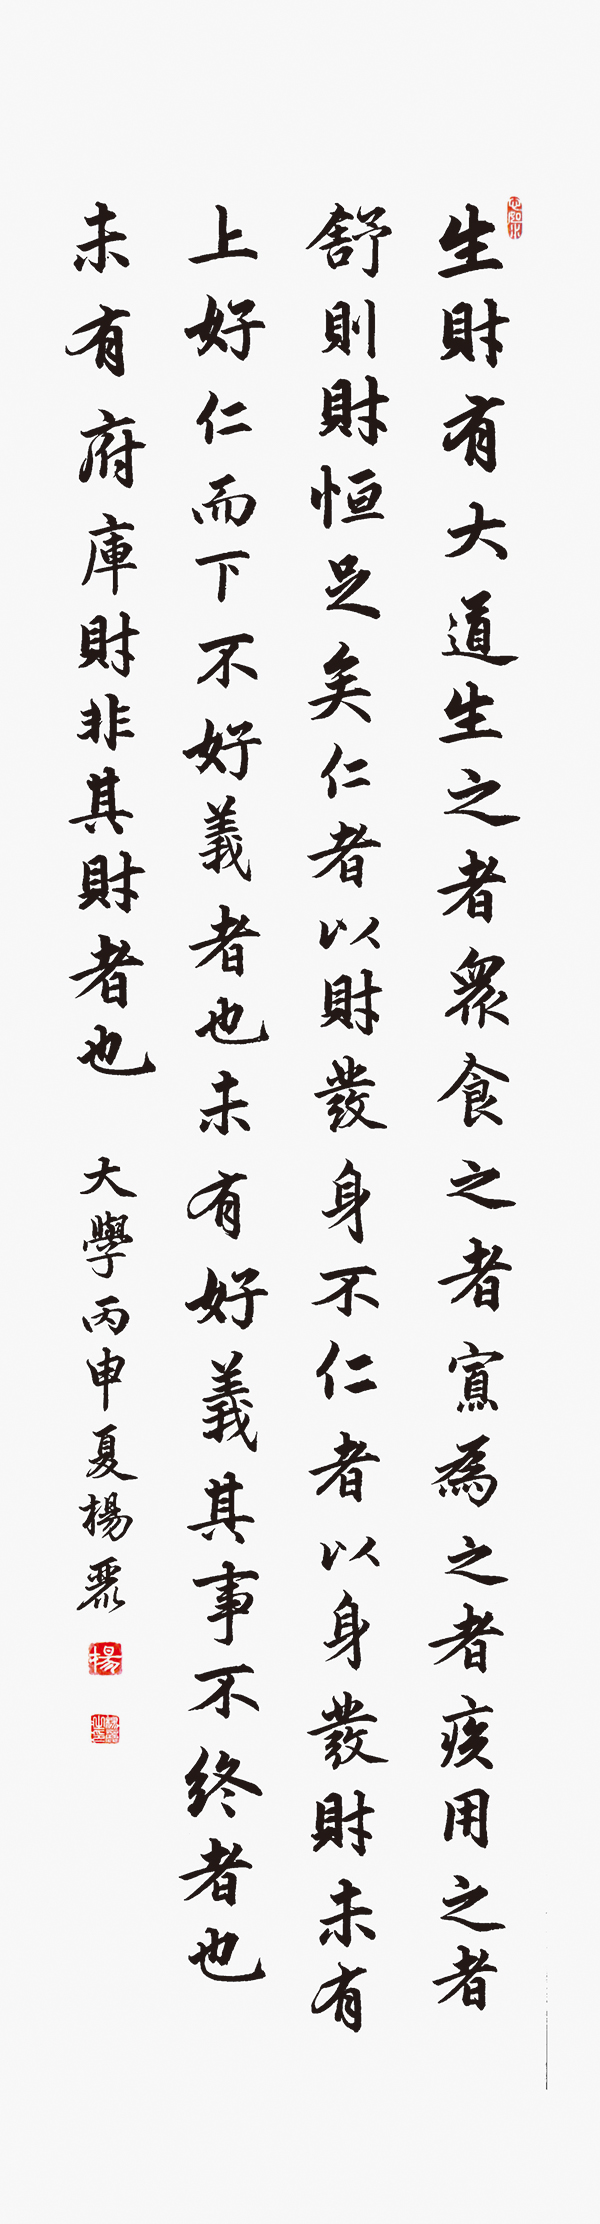 生財有大道生之者衆食之者寡為之者疾用之者
舒則財恒足矣仁者以財發身不仁者以身發財未有
上好仁而下不好義者也未有好義其事不終者也
未有府庫財非其財者也
大學丙申夏楊
楊